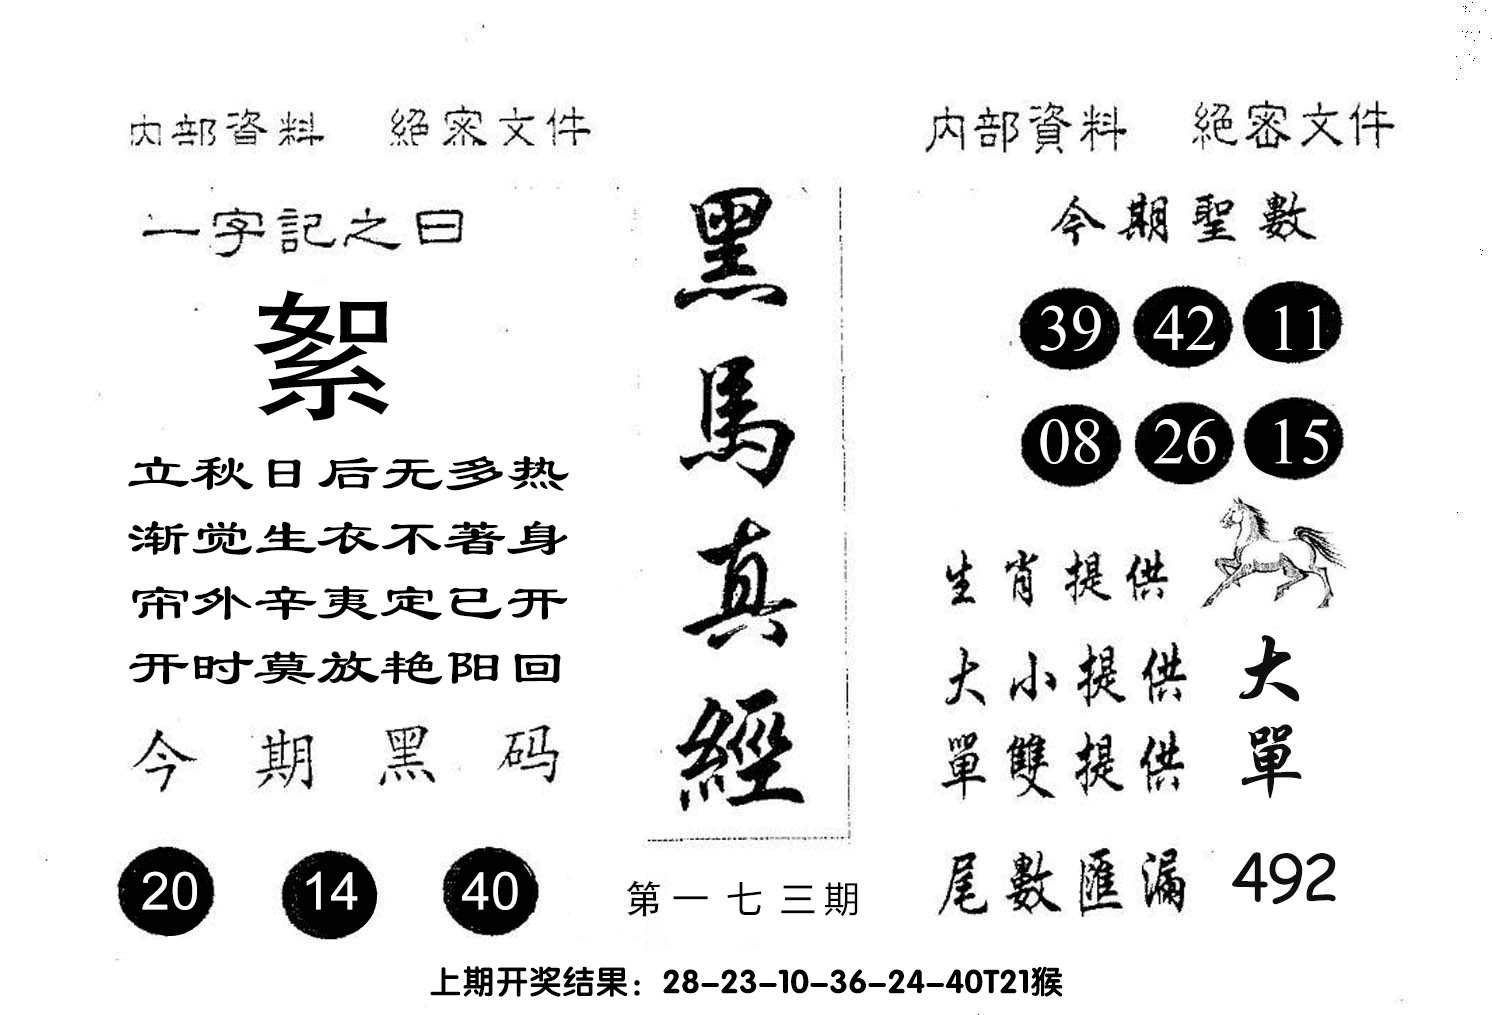 内部資料 絕密文件
一字記之曰
絮
立秋日后无多热
渐觉生衣不著身
帘外辛夷定已开
开时莫放艳阳回
今期黑码
20 14 40
黑馬真經
第一七三期
内部資料 絕密文件
今期聖數
39 42 11
08 26 15
生肖提供
大小提供 大
單雙提供 單
尾數匯漏 492
上期开奖结果：28-23-10-36-24-40T21猴